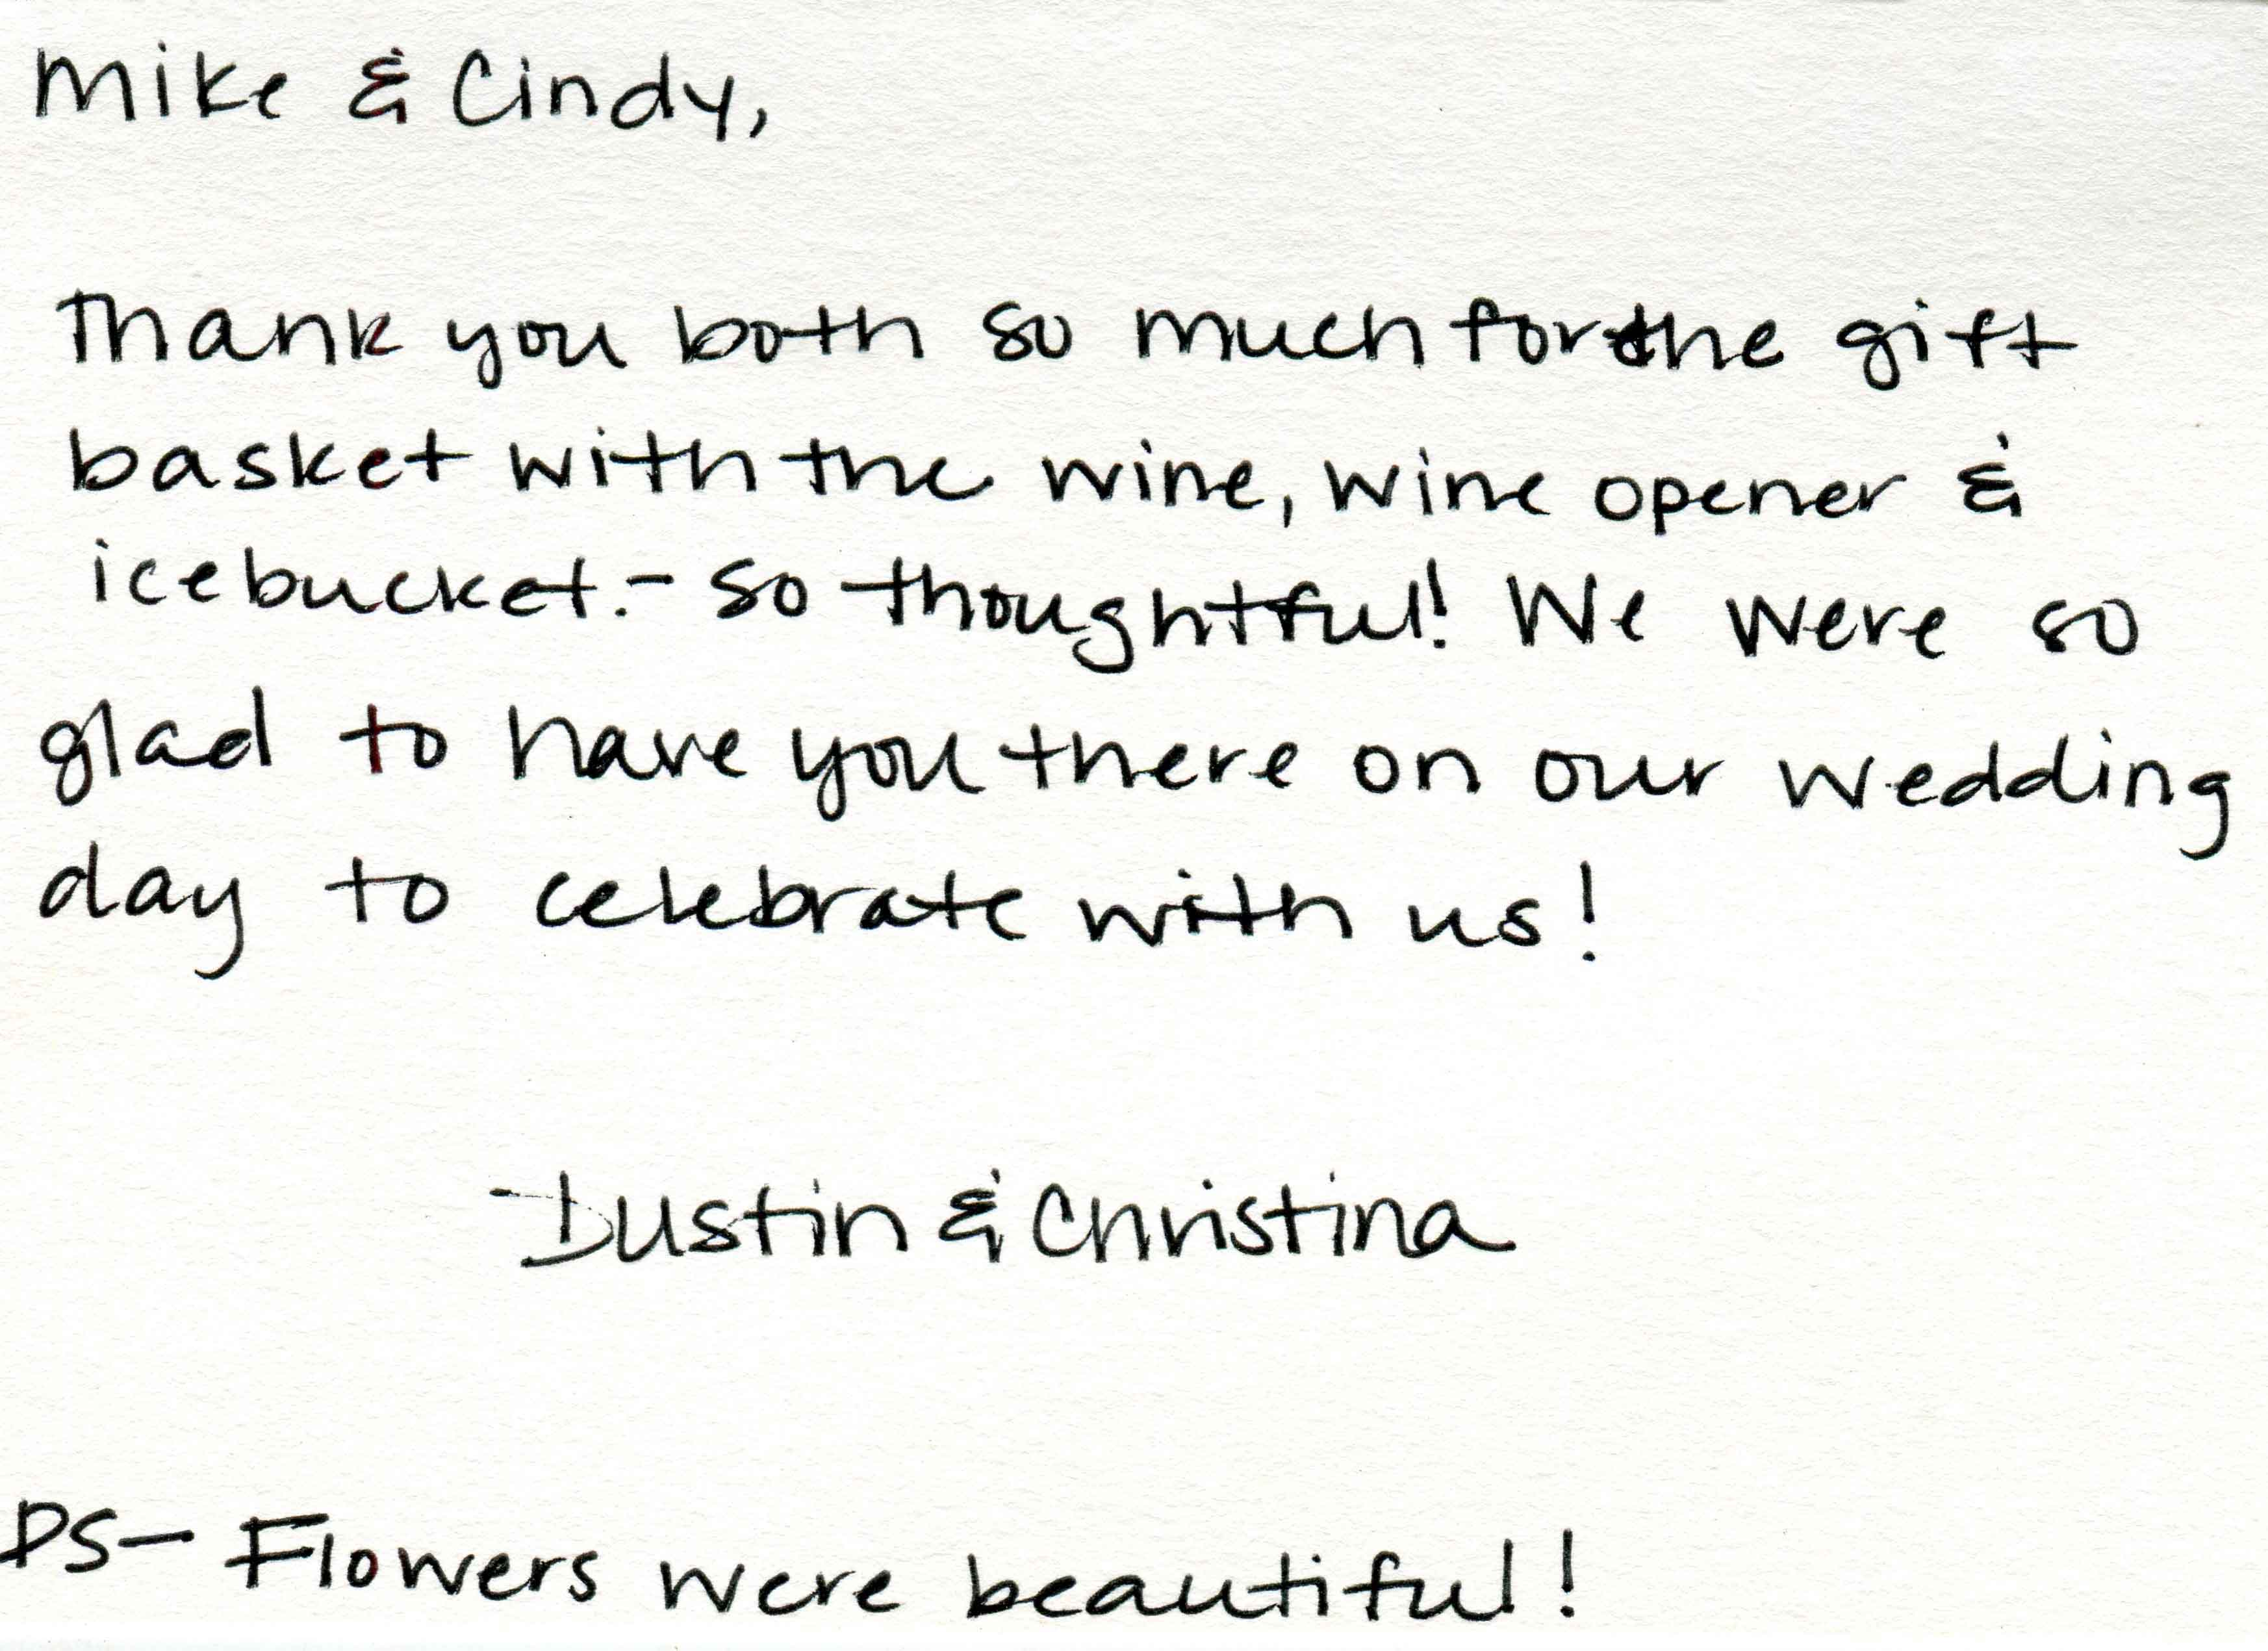 Mike & Cindy,
Thank you both so much for the gift
basket with the wine, wine opener &
icebucket.- so thoughtful! We were so
glad to have you there on our wedding
day to celebrate with us!
Dustin & Christina
PS- Flowers were beautiful!